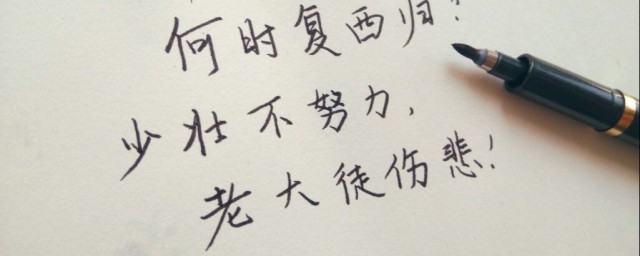 何时复西归？
少壮不努力，
老大徒伤悲！